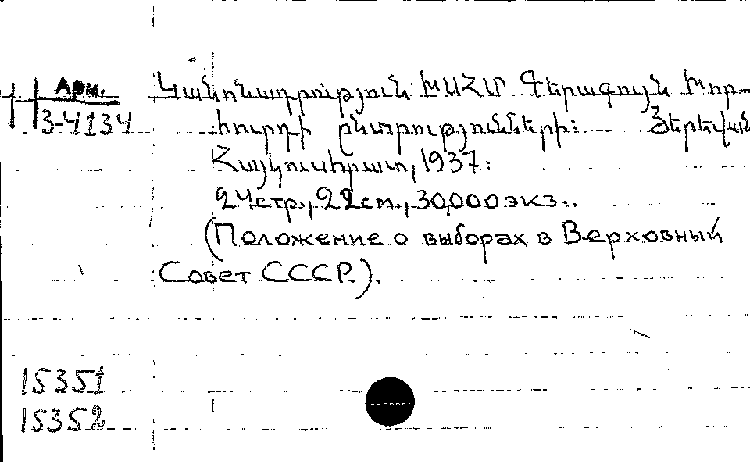 Арм.
3-4134
Կանոնադրություն ԽՍՀՄ Գերագույն Խոր-
հուրդի ընտրությունների: Յերեվան
Հայկուսհրատ, 1937:
24стр., 22см., 30,000экз..
(Положение о выборах в Верховный
Совет СССР.).
15351
15352